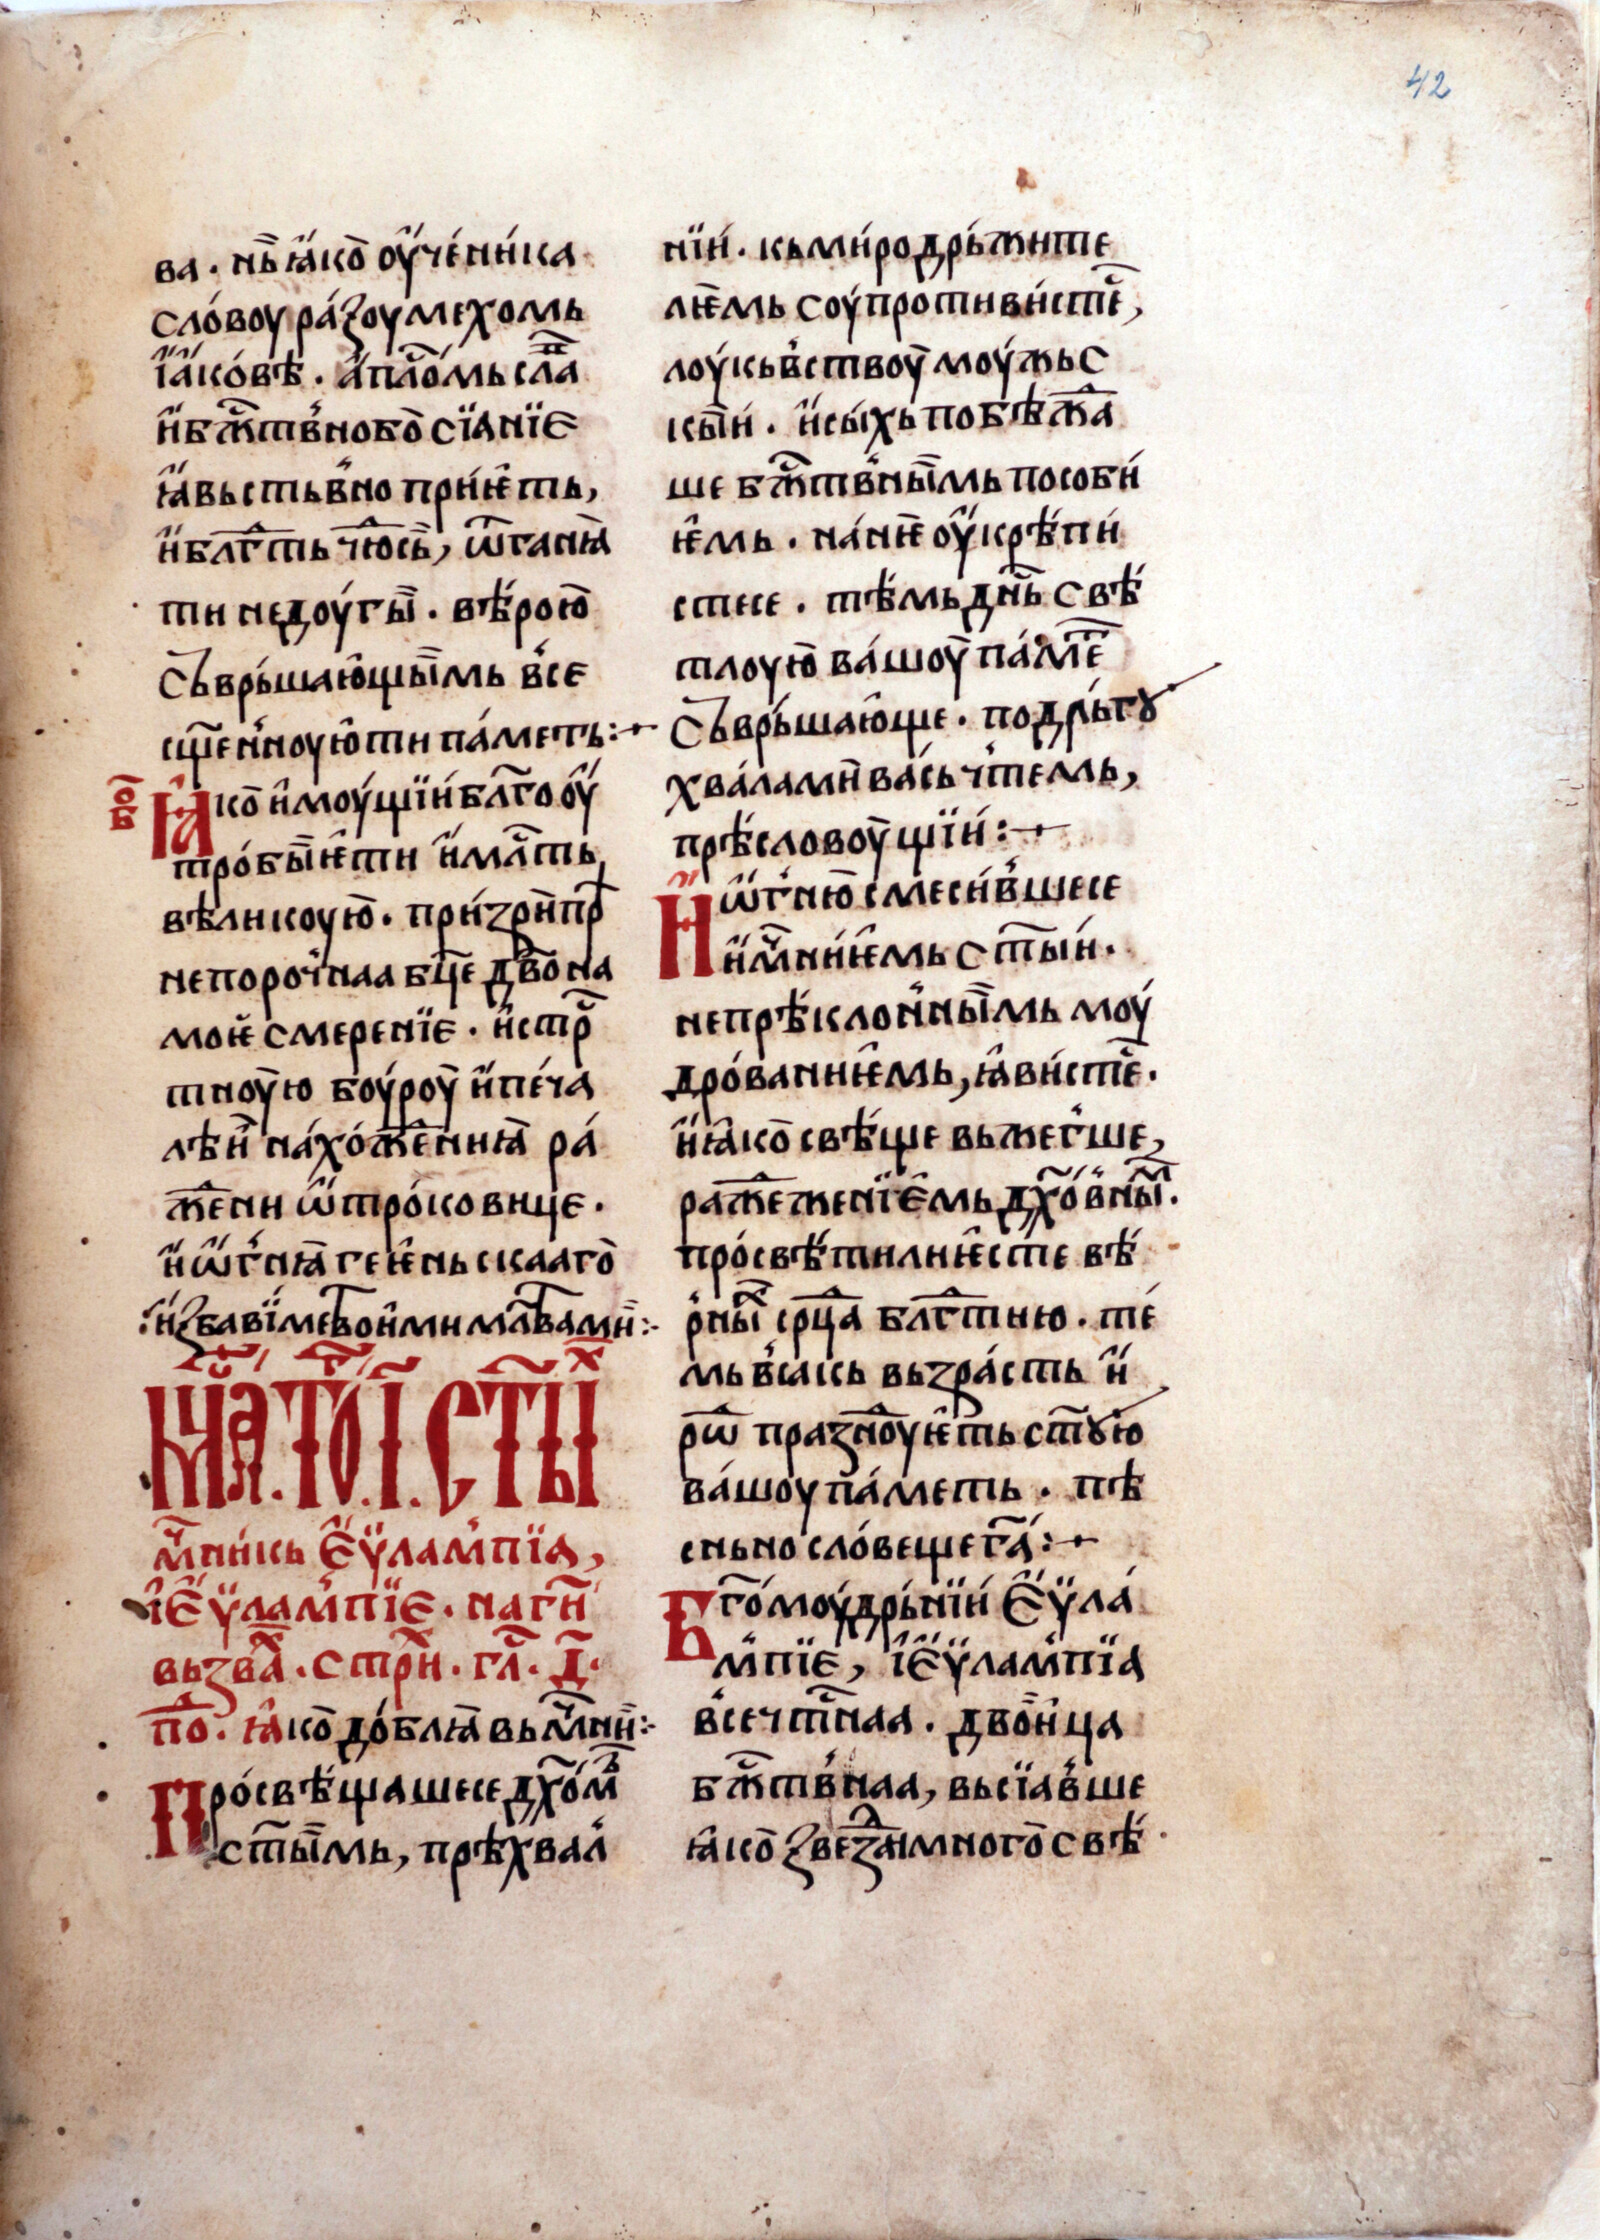 42
ва · нь꙼ ꙗко̀ ѹ҆че́ни́ка
сло́воу ра́ꙁоумехомь
і҆а҆ко́вѣ · а҆пⷭ҇ло́мь сла
и҆ бж҃твⷭ҇но бо̀ сїанїе
ꙗ҆вьствьно при́ѥть,
и҆ бл҃гⷣть чюⷣсь, ѿганꙗ̀
ти недоу́гы̀ · вѣ́рою̀
сьврь́шаю҆щы̀мь все
сщ҃еннꙋю ти па́меть :·
бо҃ро
Ꙗко̀ и҆моу́щїи́ бл҃го оу҆
тро́бы̀ ѥ҆ти и҆ млⷭ҇ть
вѣликоую̀ · при́ꙁри прⷭ҇
непорочнаа бц҃е дв҃о на
моѥ смеренїе · и҆ стрⷭ҇
тноу̀ю боу́роу̀ и҆ пе́ча
лѣи҆ на́хо́ж҆еннꙗ̀ ра́
ж҆ени ѿтро́ковице ·
и҆ ѿгнꙗ̀ геѥньскааго̀
и҆ꙁбави́ ме твои҆ми мл҃твами :·
Мцⷭ҇а. то́. і. ст҃ыⷯ
мчⷭ҇никь Е҆ѵлампїа,
і҆ Е҆ѵлампїе · на гⷭ҇и
вьꙁваⷯ · стрⷯи · глⷭ҇ · д҃ ·
поⷣ · ꙗ҆ко̀ до́блꙗ̀ вь мчⷭ҇ни :·
Про́свѣ́щашесе дх҃о́мь
ст҃ы̀мь, прѣхвал
нїи́ · кь ми́родрь́жите
лѥ̀мь соу́противи́стеⷭ҇,
лоу́кьвствоу̀ моу́жьс
кы̀и́ · и҆ сы́хь побѣж҆а
ше бжⷭ҇твны̀мь пособи́
ѥ҆мь · на́ нѥ̀ оу҆крѣ́пи́
стесе · тѣ́мь дн҃ь свѣ́
тлоую̀ ва́шоу̀ па́меⷮ
сьврь́шаю҆ще · по дль́гꙋ
хва́ламѝ ва́сь чⷭ҇темь,
прѣ́словоу̀щїи́ :·
И ѿгню̀ смеси́вшесе
и҆ мчⷭ҇ни́ѥ҆мь ст҃ы́и́ ·
непрѣ́клонны̀мь моу́
дро́ванниѥ҆мь, ꙗ҆ви́стеⷭ҇ ·
и҆ ꙗ҆ко̀ свѣ́ще вьжегше,
раж҆еженїе҆мь дх҃о́вныⷨ ·
про́свѣ́тилниѥ҆сте вѣ́
рныⷯ срⷣца бл҃гⷣтию · те́
мь всакь вьꙁра́сть и҆
рѡⷣ праꙁноу̀ѥ҆ть ст҃ꙋю
ва́шоу па́меть · пѣ
сньно сло́веще га́ :·
Б҃го́моу́дрь́нїи́ Е҆ѵла́
мпїе, і҆ Е҆ѵлампїа
всечтⷭ҇наа · двои҆ца
бжⷭ҇твнаа, вьсїавше
ꙗ҆ко̀ ꙁвеꙁⷣи многосвѣ́